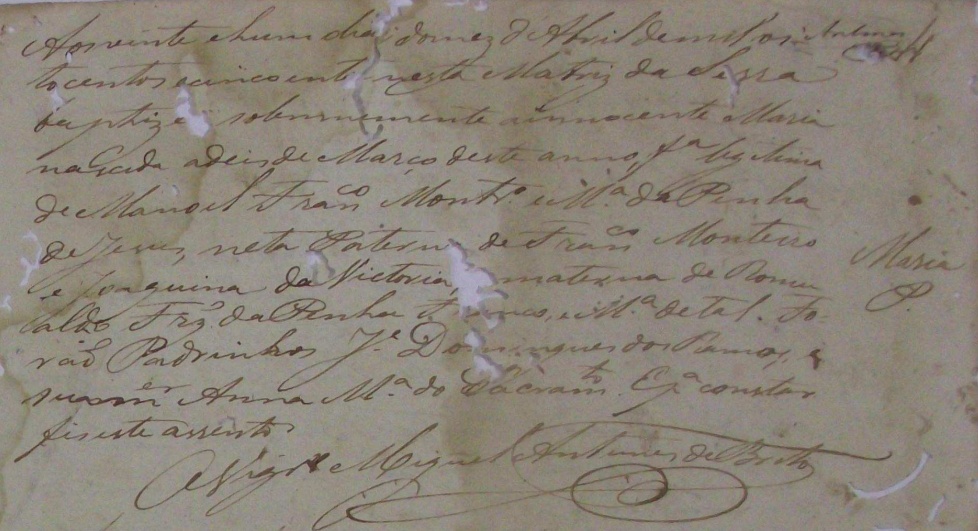 Aos vinte e hum dias do mez d'Abril de mil oi
tocentos e cincoenta nesta Matriz da Serra
baptizei solemnemente a innocente Maria
nascida a deis de Março deste anno, fª legitima
de Manoel Franco Montrº e Mª da Penha
de Jesus, neta Paterna de Franco Monteiro
e Joaquina da Victoria, materna de Romu
aldo Frz da Penha e Mª de tal. Fo-
rão Padrinhos Je Domingues dos Ramos, e
sua mer Anna Mª do Sacramto. E pª constar
fis este assento
O Vigrº Miguel Antunes de Brito
Maria
P.